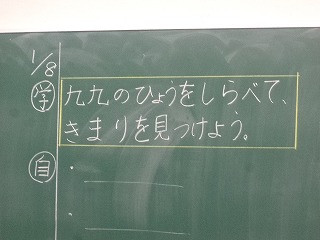 1/8
学 九九のひょうをしらべて、
きまりを見つけよう。
自 ・
・